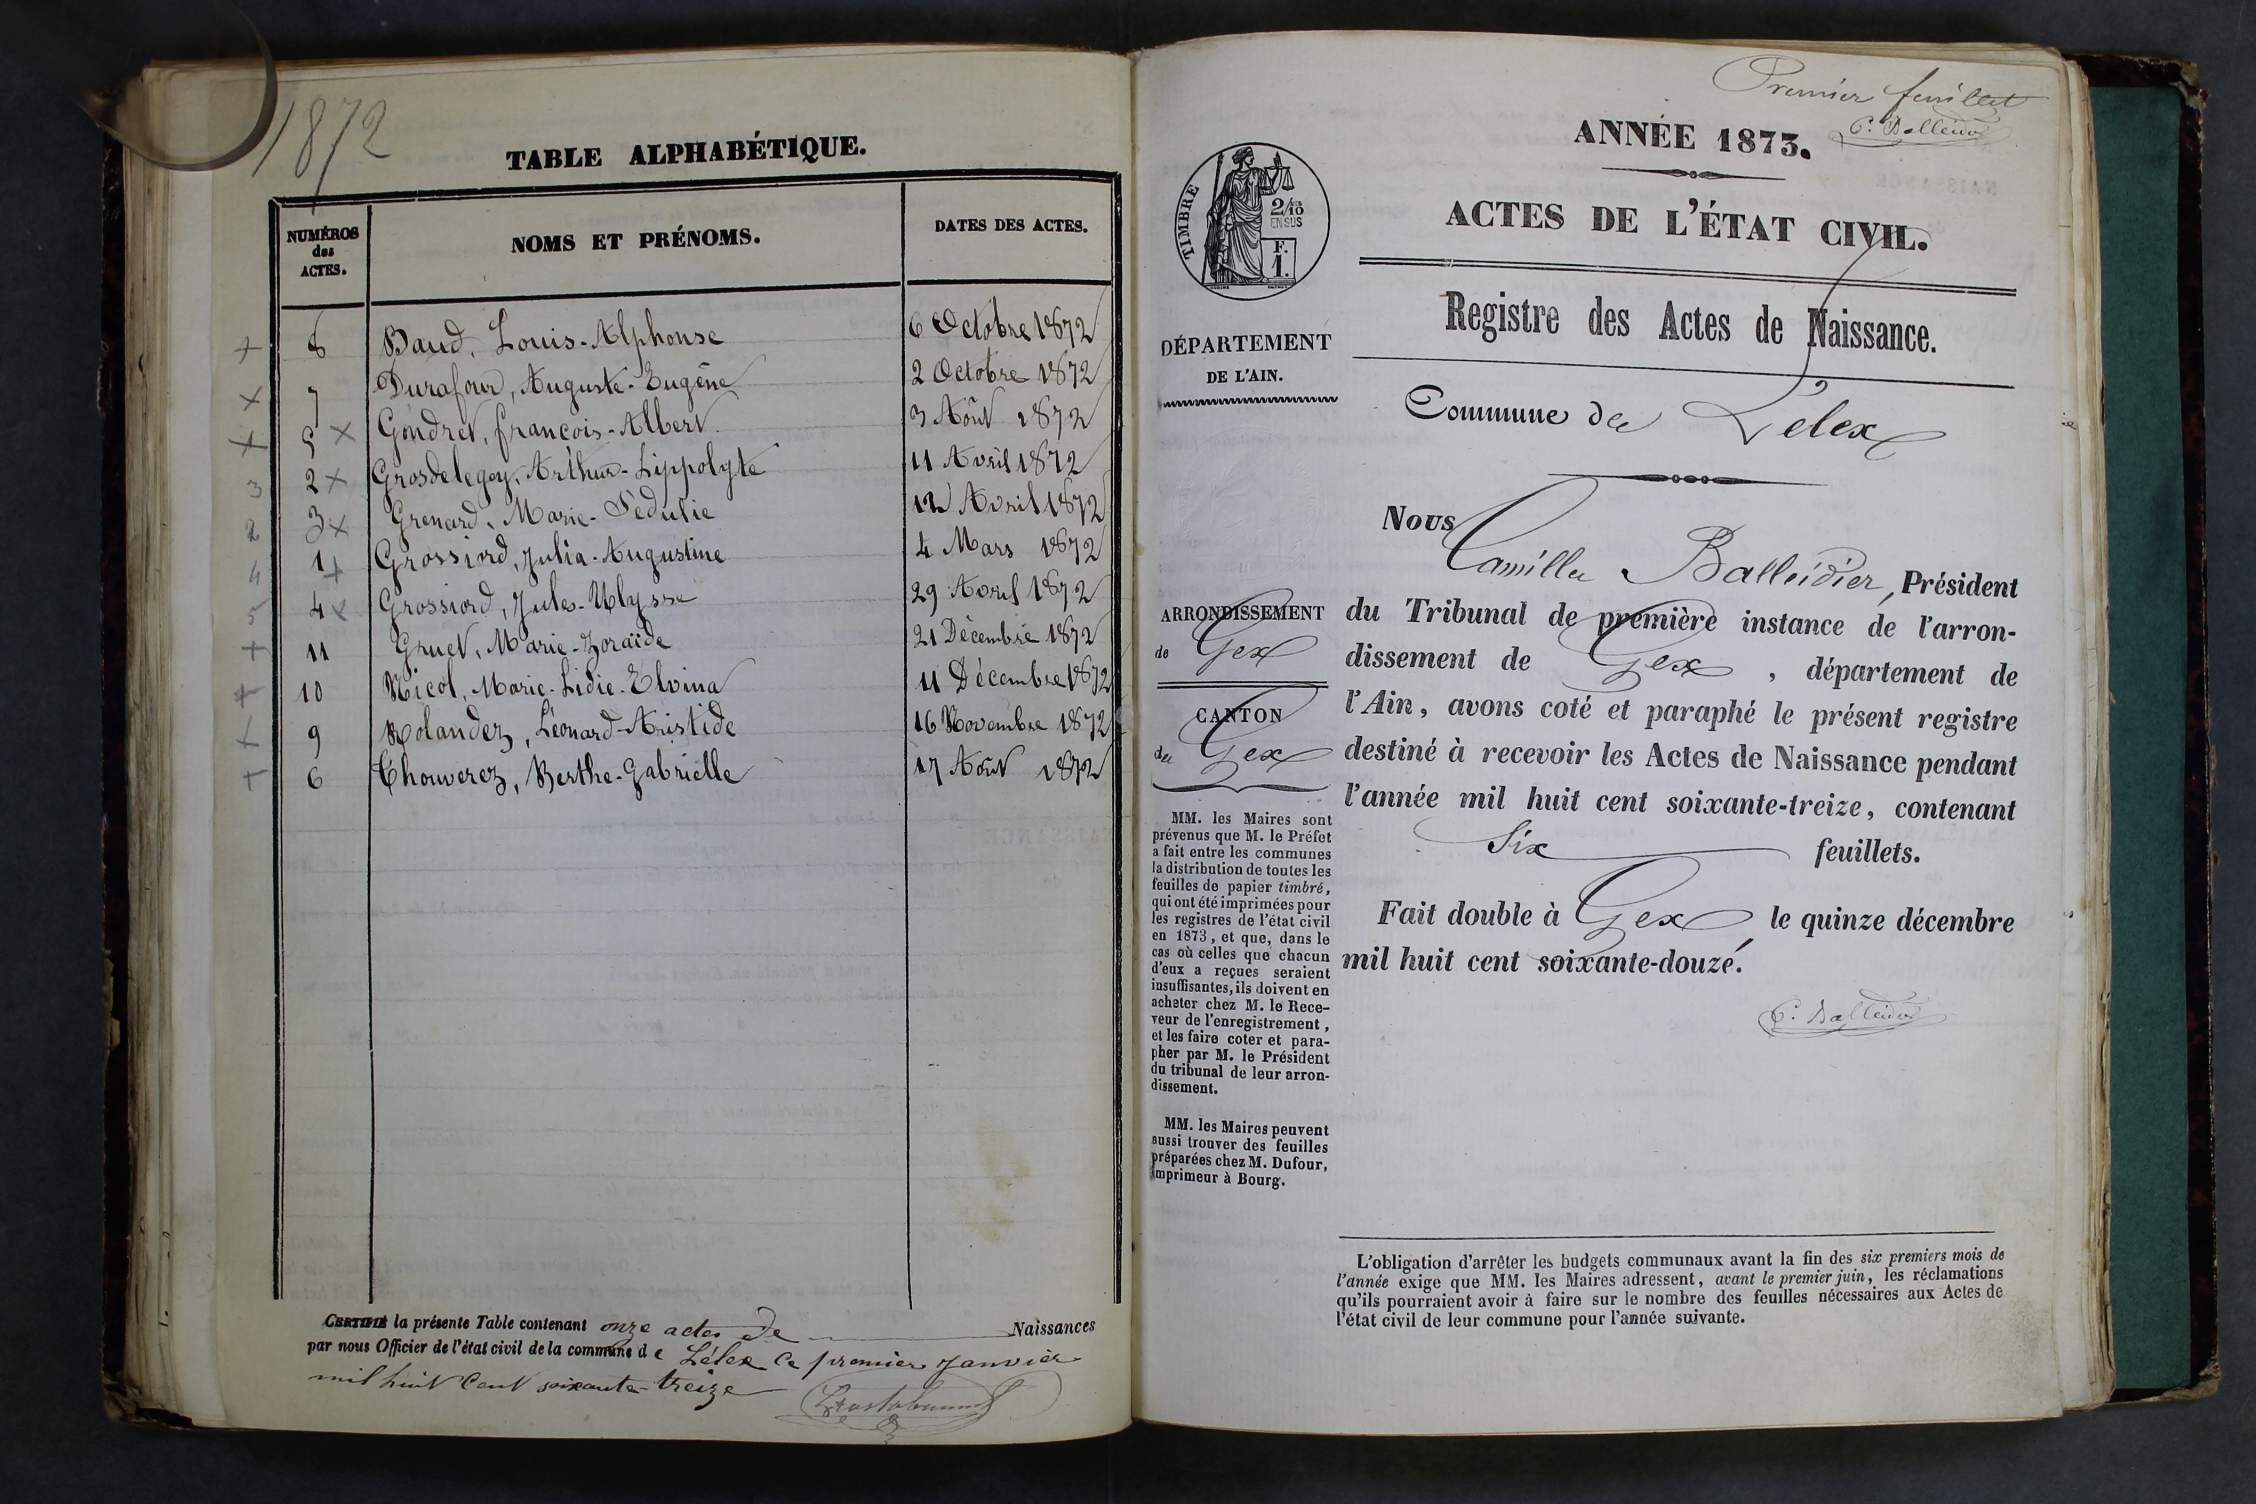 1872
TABLE ALPHABÉTIQUE.
NUMÉROS des ACTES. NOMS ET PRÉNOMS. DATES DES ACTES.
+ 8 Baud, Louis-Alphonse 6 Octobre 1872
x 7 Durafour, Auguste-Eugène 2 Octobre 1872
+ 5 x Gondret, françois-Albert. 3 Août 1872
3 2 x Grosdelegoy, Arthur-Lippolyte 11 Avril 1872
2 3 x Grenard, Marie-Sédulie 12 Avril 1872
4 1 + Grossiord, Julia-Augustine 4 Mars 1872
5 4 x Grossiord, Jules-Ulysse 29 Avril 1872
+ 11 Gruet, Marie-Zoraïde 21 Décembre 1872
+ 10 Nicol, Marie-Lidie-Elvina 11 Décembre 1872
+ 9 Rolandez, Léonard-Aristide 16 Novembre 1872
+ 6 Thouverez, Berthe-Gabrielle 17 Août 1872
CERTIFIÉ la présente Table contenant onze actes de Naissances
par nous Officier de l'état civil de la commune de Lélex ce premier Janvier
mil huit cent soixante-treize
Premier feuillet
C. Balleidier
ANNÉE 1873.
ACTES DE L'ÉTAT CIVIL.
TIMBRE
2/10
EN SUS
F.
1.
Registre des Actes de Naissance.
DÉPARTEMENT
DE L'AIN.
Commune de Lélex
Nous Camille Balleidier, Président
du Tribunal de première instance de l'arron-
dissement de Gex, département de
l'Ain, avons coté et paraphé le présent registre
destiné à recevoir les Actes de Naissance pendant
l'année mil huit cent soixante-treize, contenant
Six feuillets.
Fait double à Gex, le quinze décembre
mil huit cent soixante-douze.
C. Balleidier
ARRONDISSEMENT
de Gex
CANTON
de Gex
MM. les Maires sont
prévenus que M. le Préfet
a fait entre les communes
la distribution de toutes les
feuilles de papier timbré,
qui ont été imprimées pour
les registres de l'état civil
en 1873, et que, dans le
cas où celles que chacun
d'eux a reçues seraient
insuffisantes, ils doivent en
acheter chez M. le Rece-
veur de l'enregistrement,
et les faire coter et para-
pher par M. le Président
du tribunal de leur arron-
dissement.
MM. les Maires peuvent
aussi trouver des feuilles
préparées chez M. Dufour,
imprimeur à Bourg.
L'obligation d'arrêter les budgets communaux avant la fin des six premiers mois de
l'année exige que MM. les Maires adressent, avant le premier juin, les réclamations
qu'ils pourraient avoir à faire sur le nombre des feuilles nécessaires aux Actes de
l'état civil de leur commune pour l'année suivante.